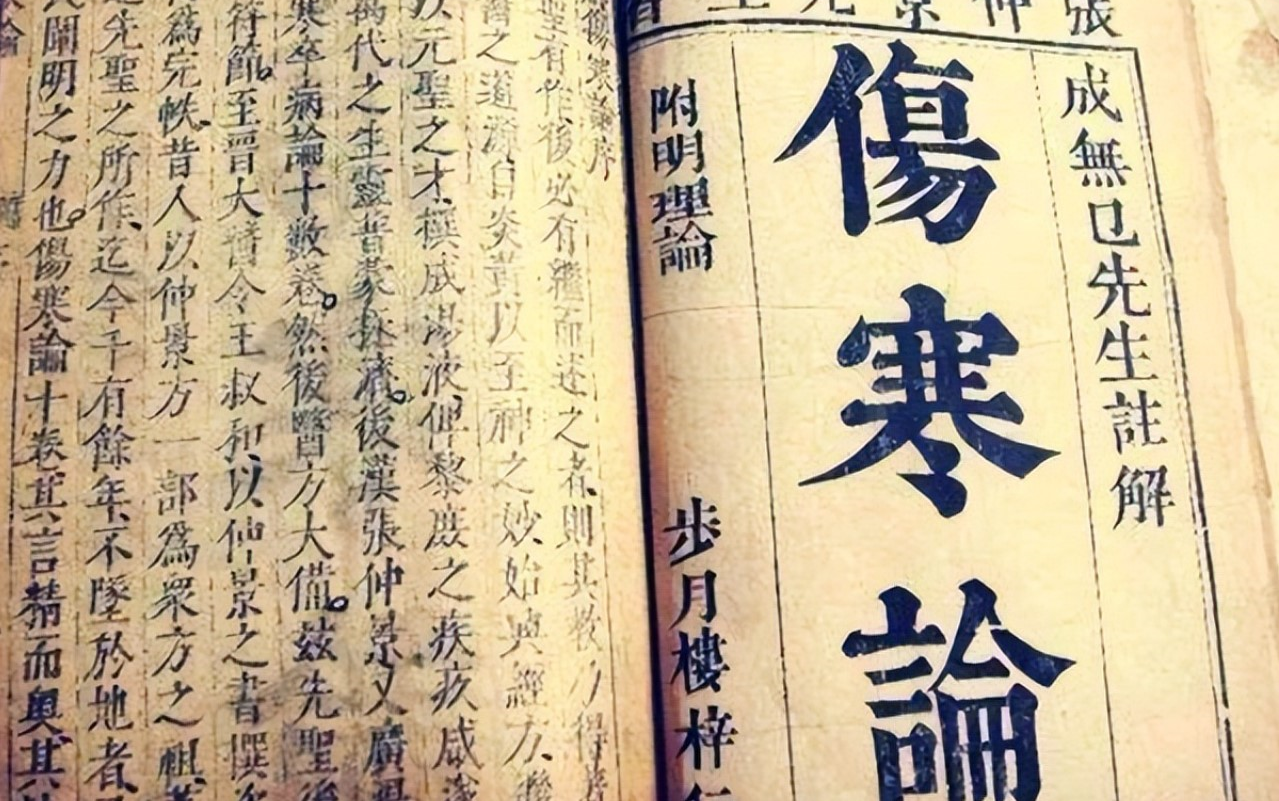 張仲景先生
成無已先生註解
傷寒論
附明理論
步月樓梓
傷寒論序
聖有作後必有繼而述之者則其教乃得
醫之道源自炎黃以至神之妙始興經方繼
以元聖之才撰成湯液俾黎庶之疾疢咸遂
萬代之生靈普蒙拯濟後漢張仲景又廣
寒卒病論十數卷然後醫方大備茲先聖後
符節至晉大醫令王叔和以仲景之書撰次
為完帙昔人以仲景方一部為衆方之祖
先聖之所作迄今千有餘年不墜於地者
氏闡明之力也傷寒論十卷其言精而奧其